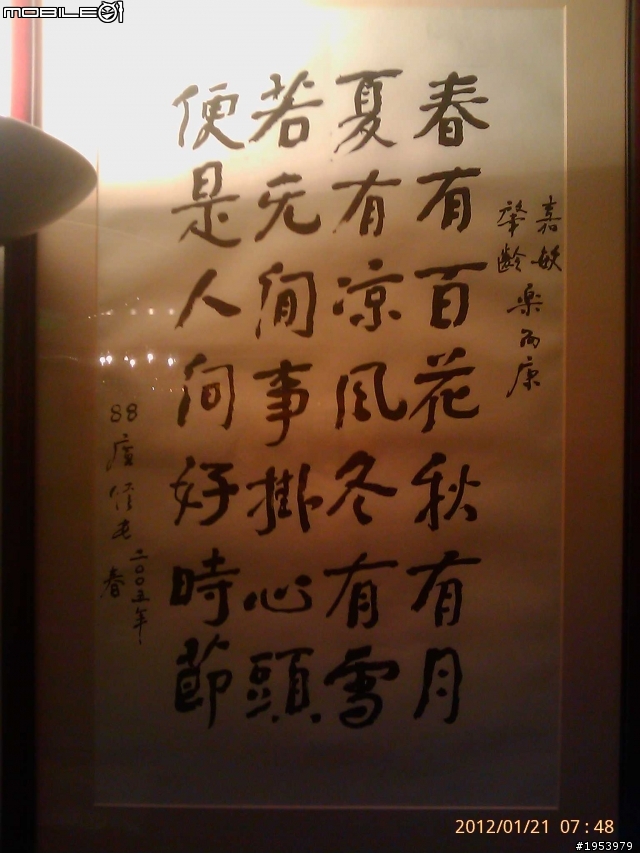 mobile01
嘉敏
肇齡 樂而康
春有百花秋有月
夏有凉风冬有雪
若无闲事掛心頭
便是人间好時節
二〇〇五年 春
88
2012/01/21 07:48
#1953979